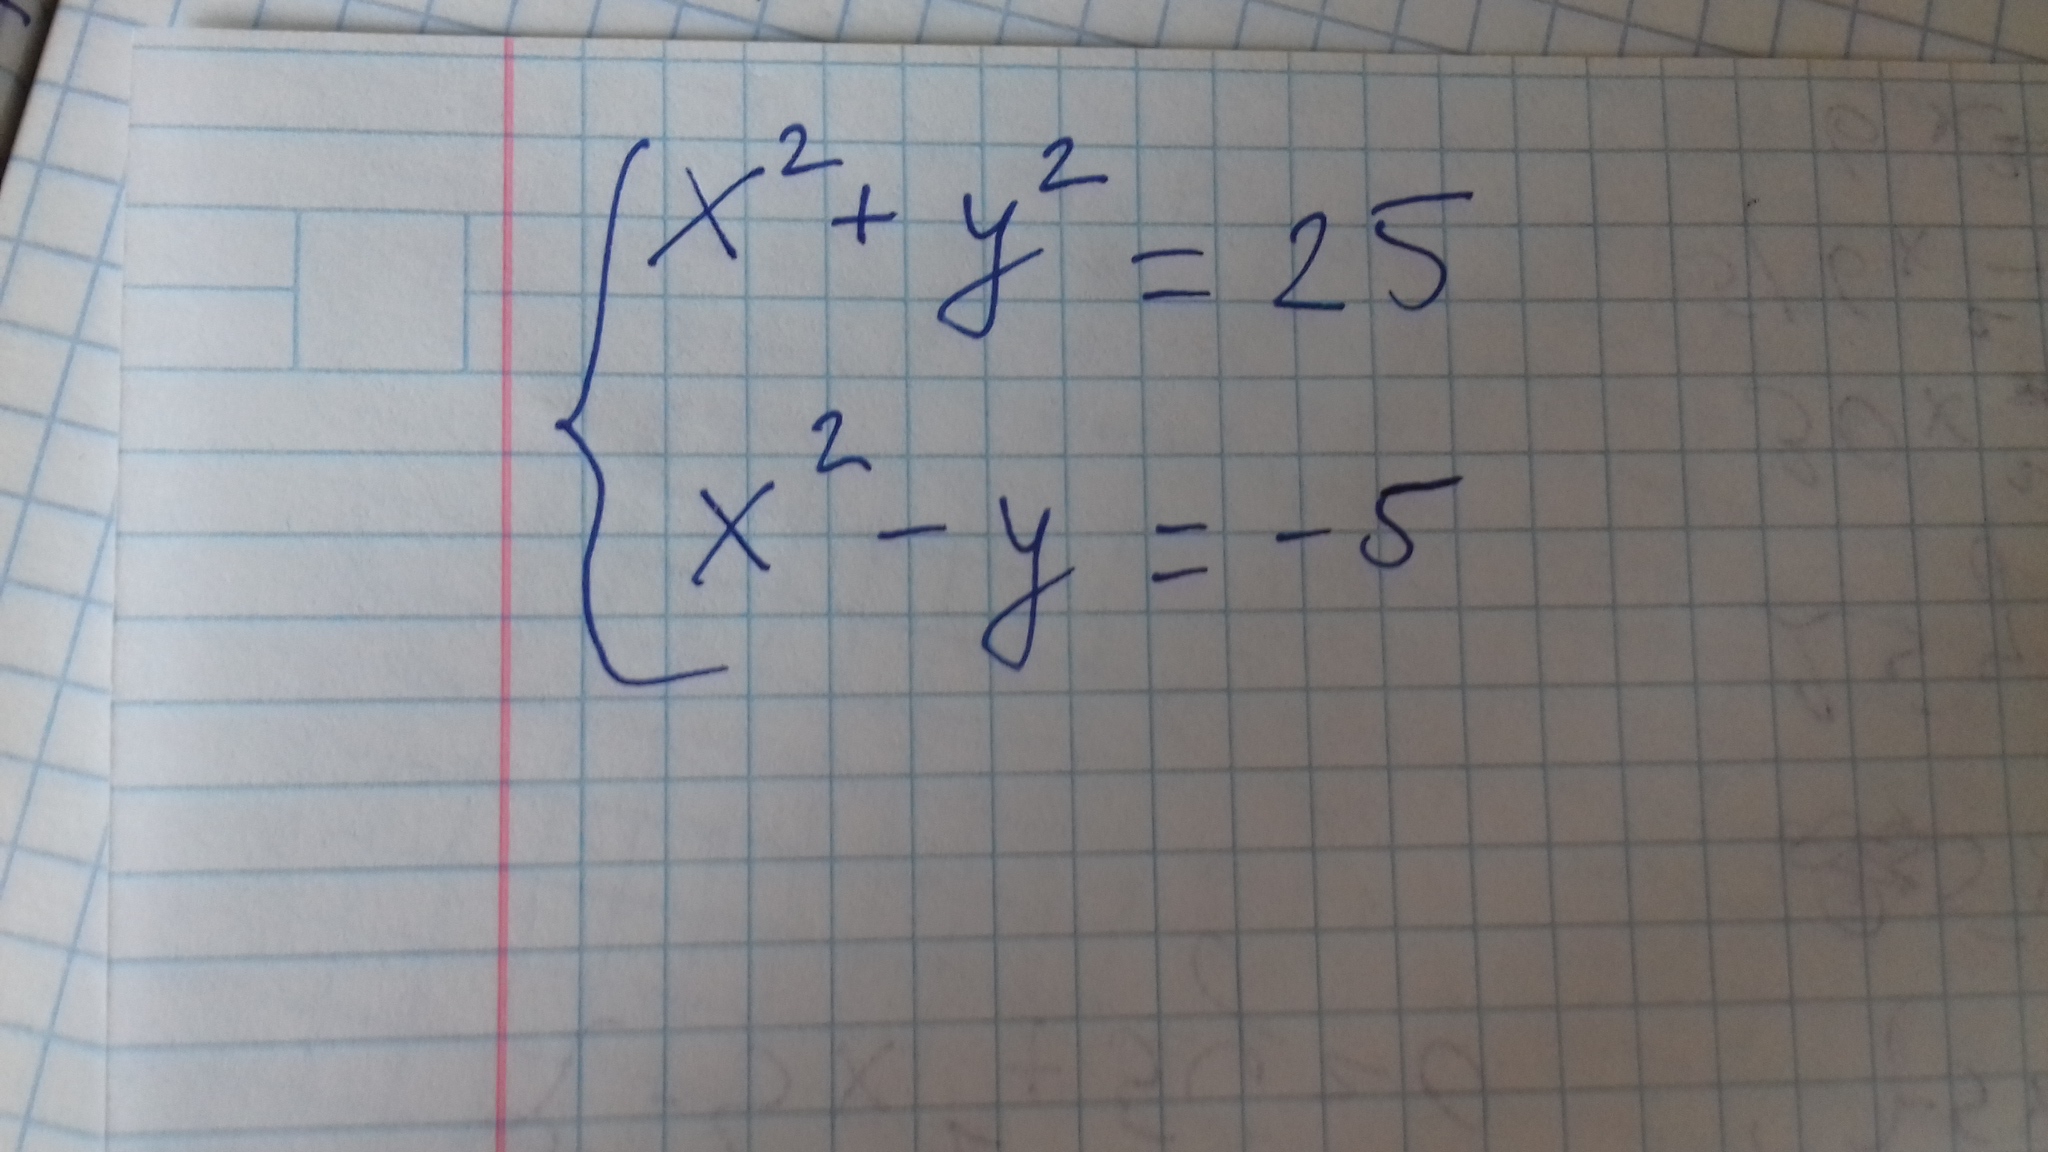 x² + y² = 25
x² - y = -5